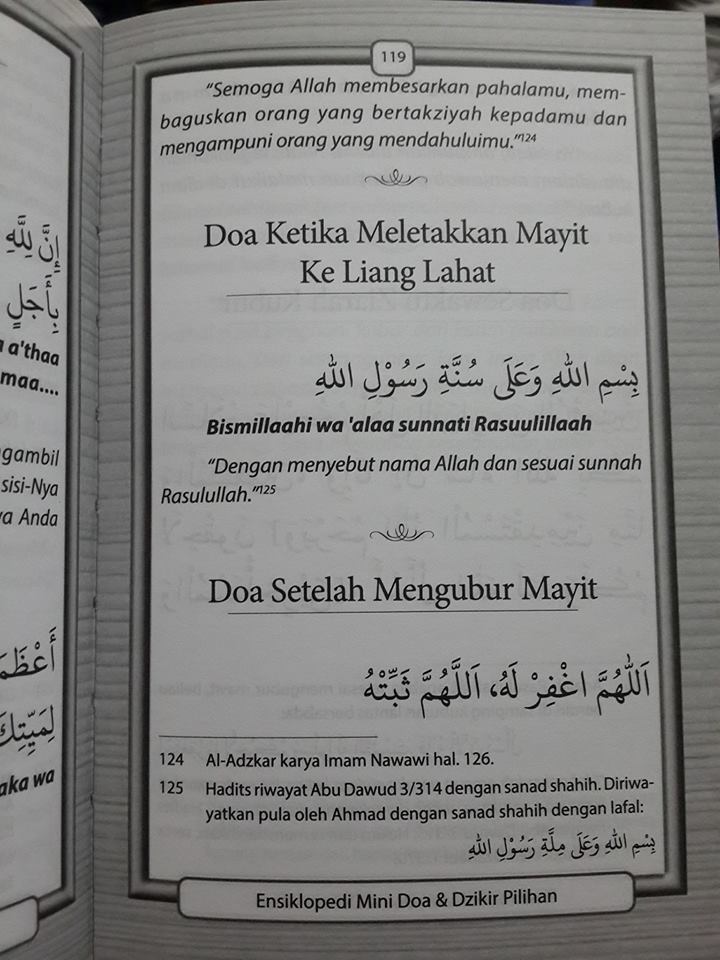 إِنَّ لِلَّهِ
بِأَجَلٍ
a a'thaa
maa....
gambil
sisi-Nya
va Anda
أَعْظَمَ
لِمَيِّتِكَ
aka wa
119
"Semoga Allah membesarkan pahalamu, mem-
baguskan orang yang bertakziyah kepadamu dan
mengampuni orang yang mendahuluimu."124
Doa Ketika Meletakkan Mayit
Ke Liang Lahat
بِسْمِ اللهِ وَعَلَى سُنَّةِ رَسُوْلِ اللهِ
Bismillaahi wa 'alaa sunnati Rasuulillaah
"Dengan menyebut nama Allah dan sesuai sunnah
Rasulullah."125
Doa Setelah Mengubur Mayit
اَللّٰهُمَّ اغْفِرْ لَهُ، اَللَّهُمَّ ثَبِّتْهُ
124 Al-Adzkar karya Imam Nawawi hal. 126.
125 Hadits riwayat Abu Dawud 3/314 dengan sanad shahih. Diriwa-
yatkan pula oleh Ahmad dengan sanad shahih dengan lafal:
بِسْمِ اللهِ وَعَلَى مِلَّةِ رَسُوْلِ اللهِ
Ensiklopedi Mini Doa & Dzikir Pilihan